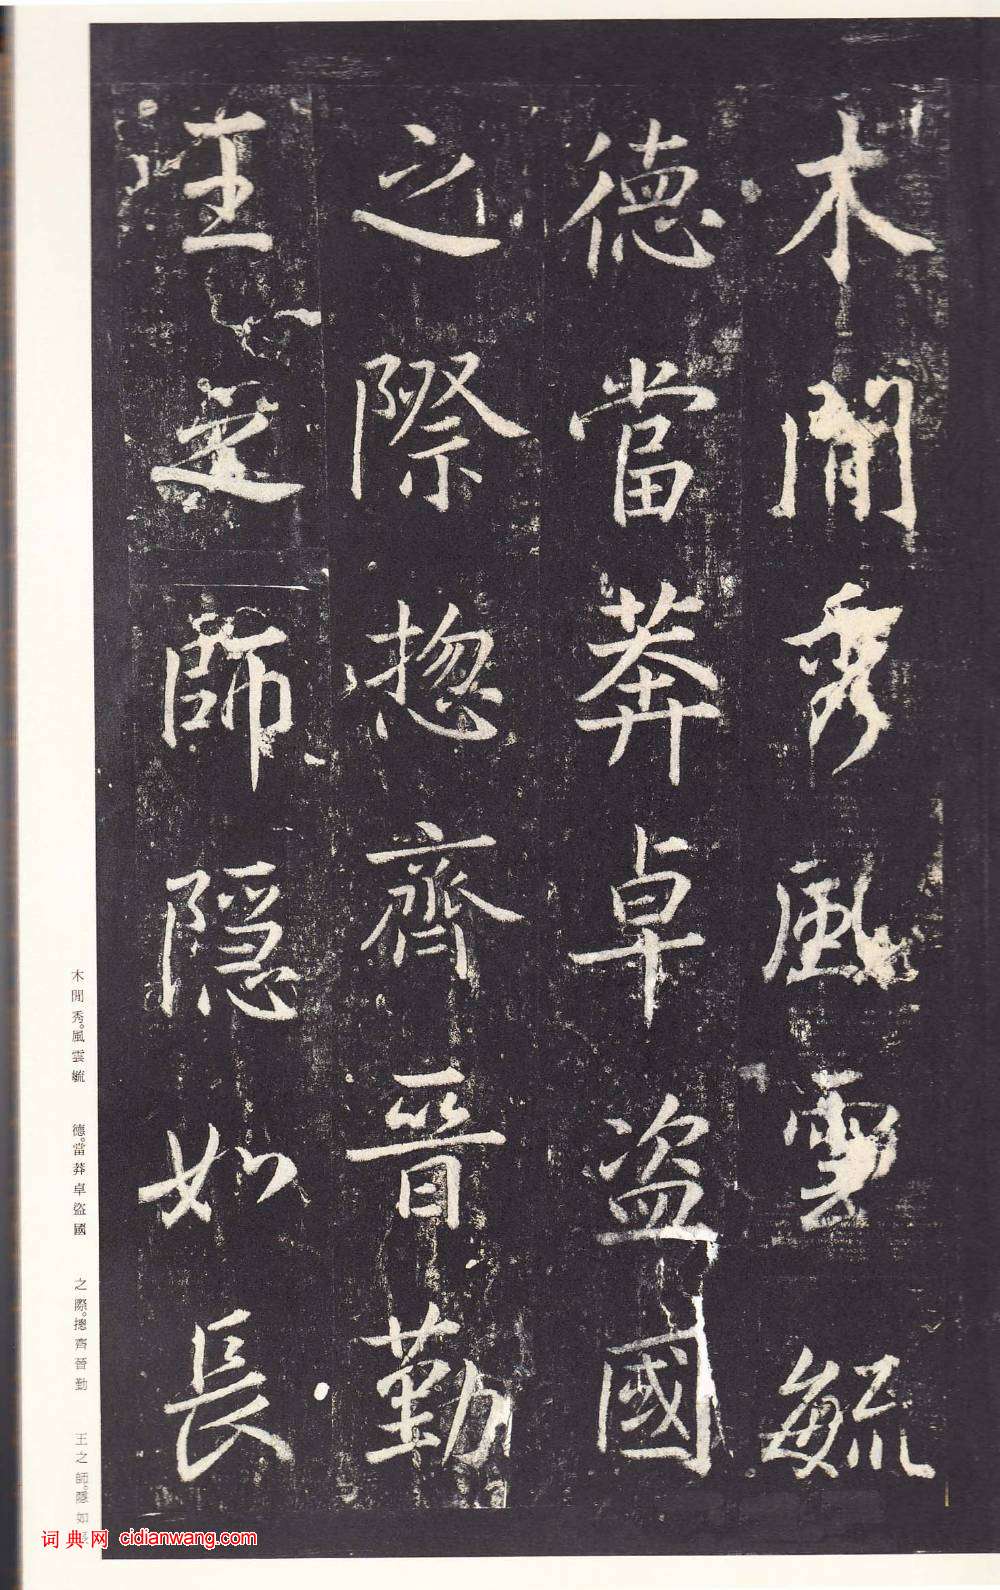 木閒秀風雲毓
德當莽卓盜國
之際揔齊晉勤
王之師隱如長
木閒秀。風雲毓 德。當莽卓盜國 之際。摠齊晉勤 王之師。隱如長
词典网 cidianwang.com